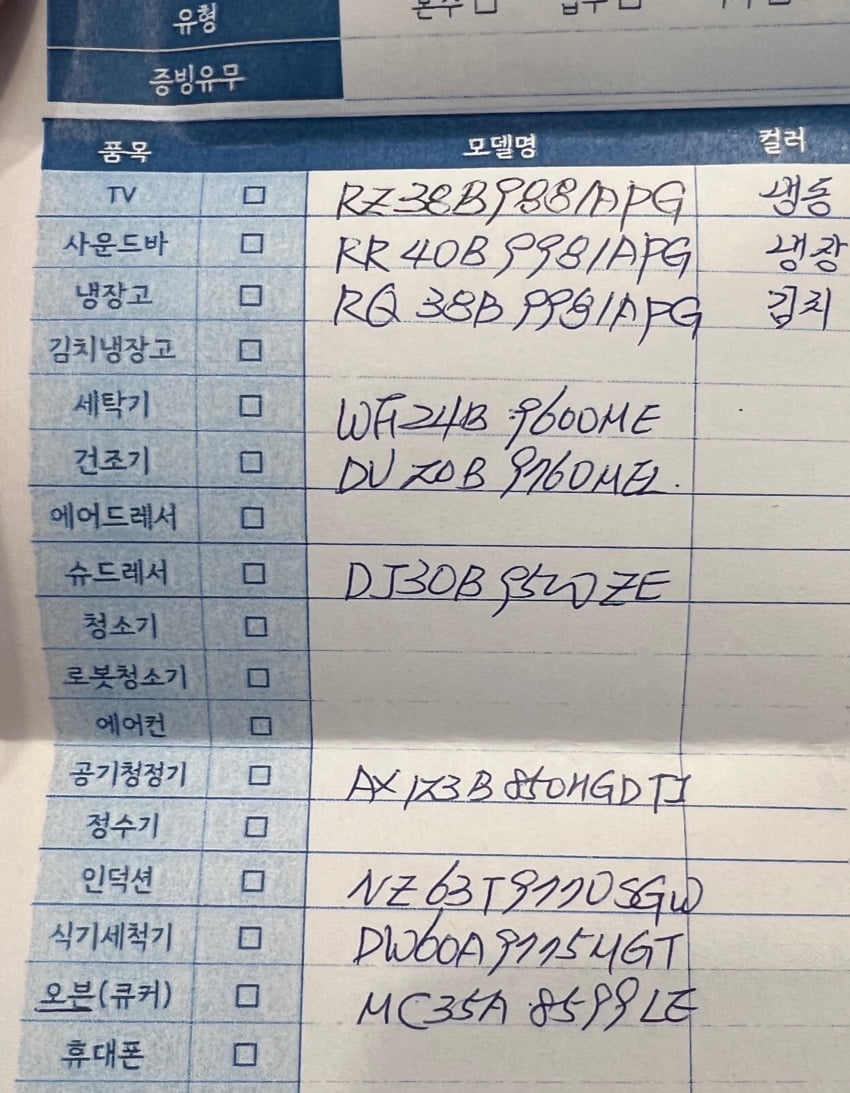 유형
증빙유무
품목 모델명 컬러
TV □ RZ38B9881APG 냉동
사운드바 □ RR40B9981APG 냉장
냉장고 □ RQ38B9981APG 김치
김치냉장고 □
세탁기 □ WF24B9600ME
건조기 □ DV20B9760ME
에어드레서 □
슈드레서 □ DJ30B9500ZE
청소기 □
로봇청소기 □
에어컨 □
공기청정기 □
정수기 □
인덕션 □ NZ63T9770SGW
식기세척기 □ DW60A9775MGT
오븐(큐커) □ MC35A8599LE
휴대폰 □